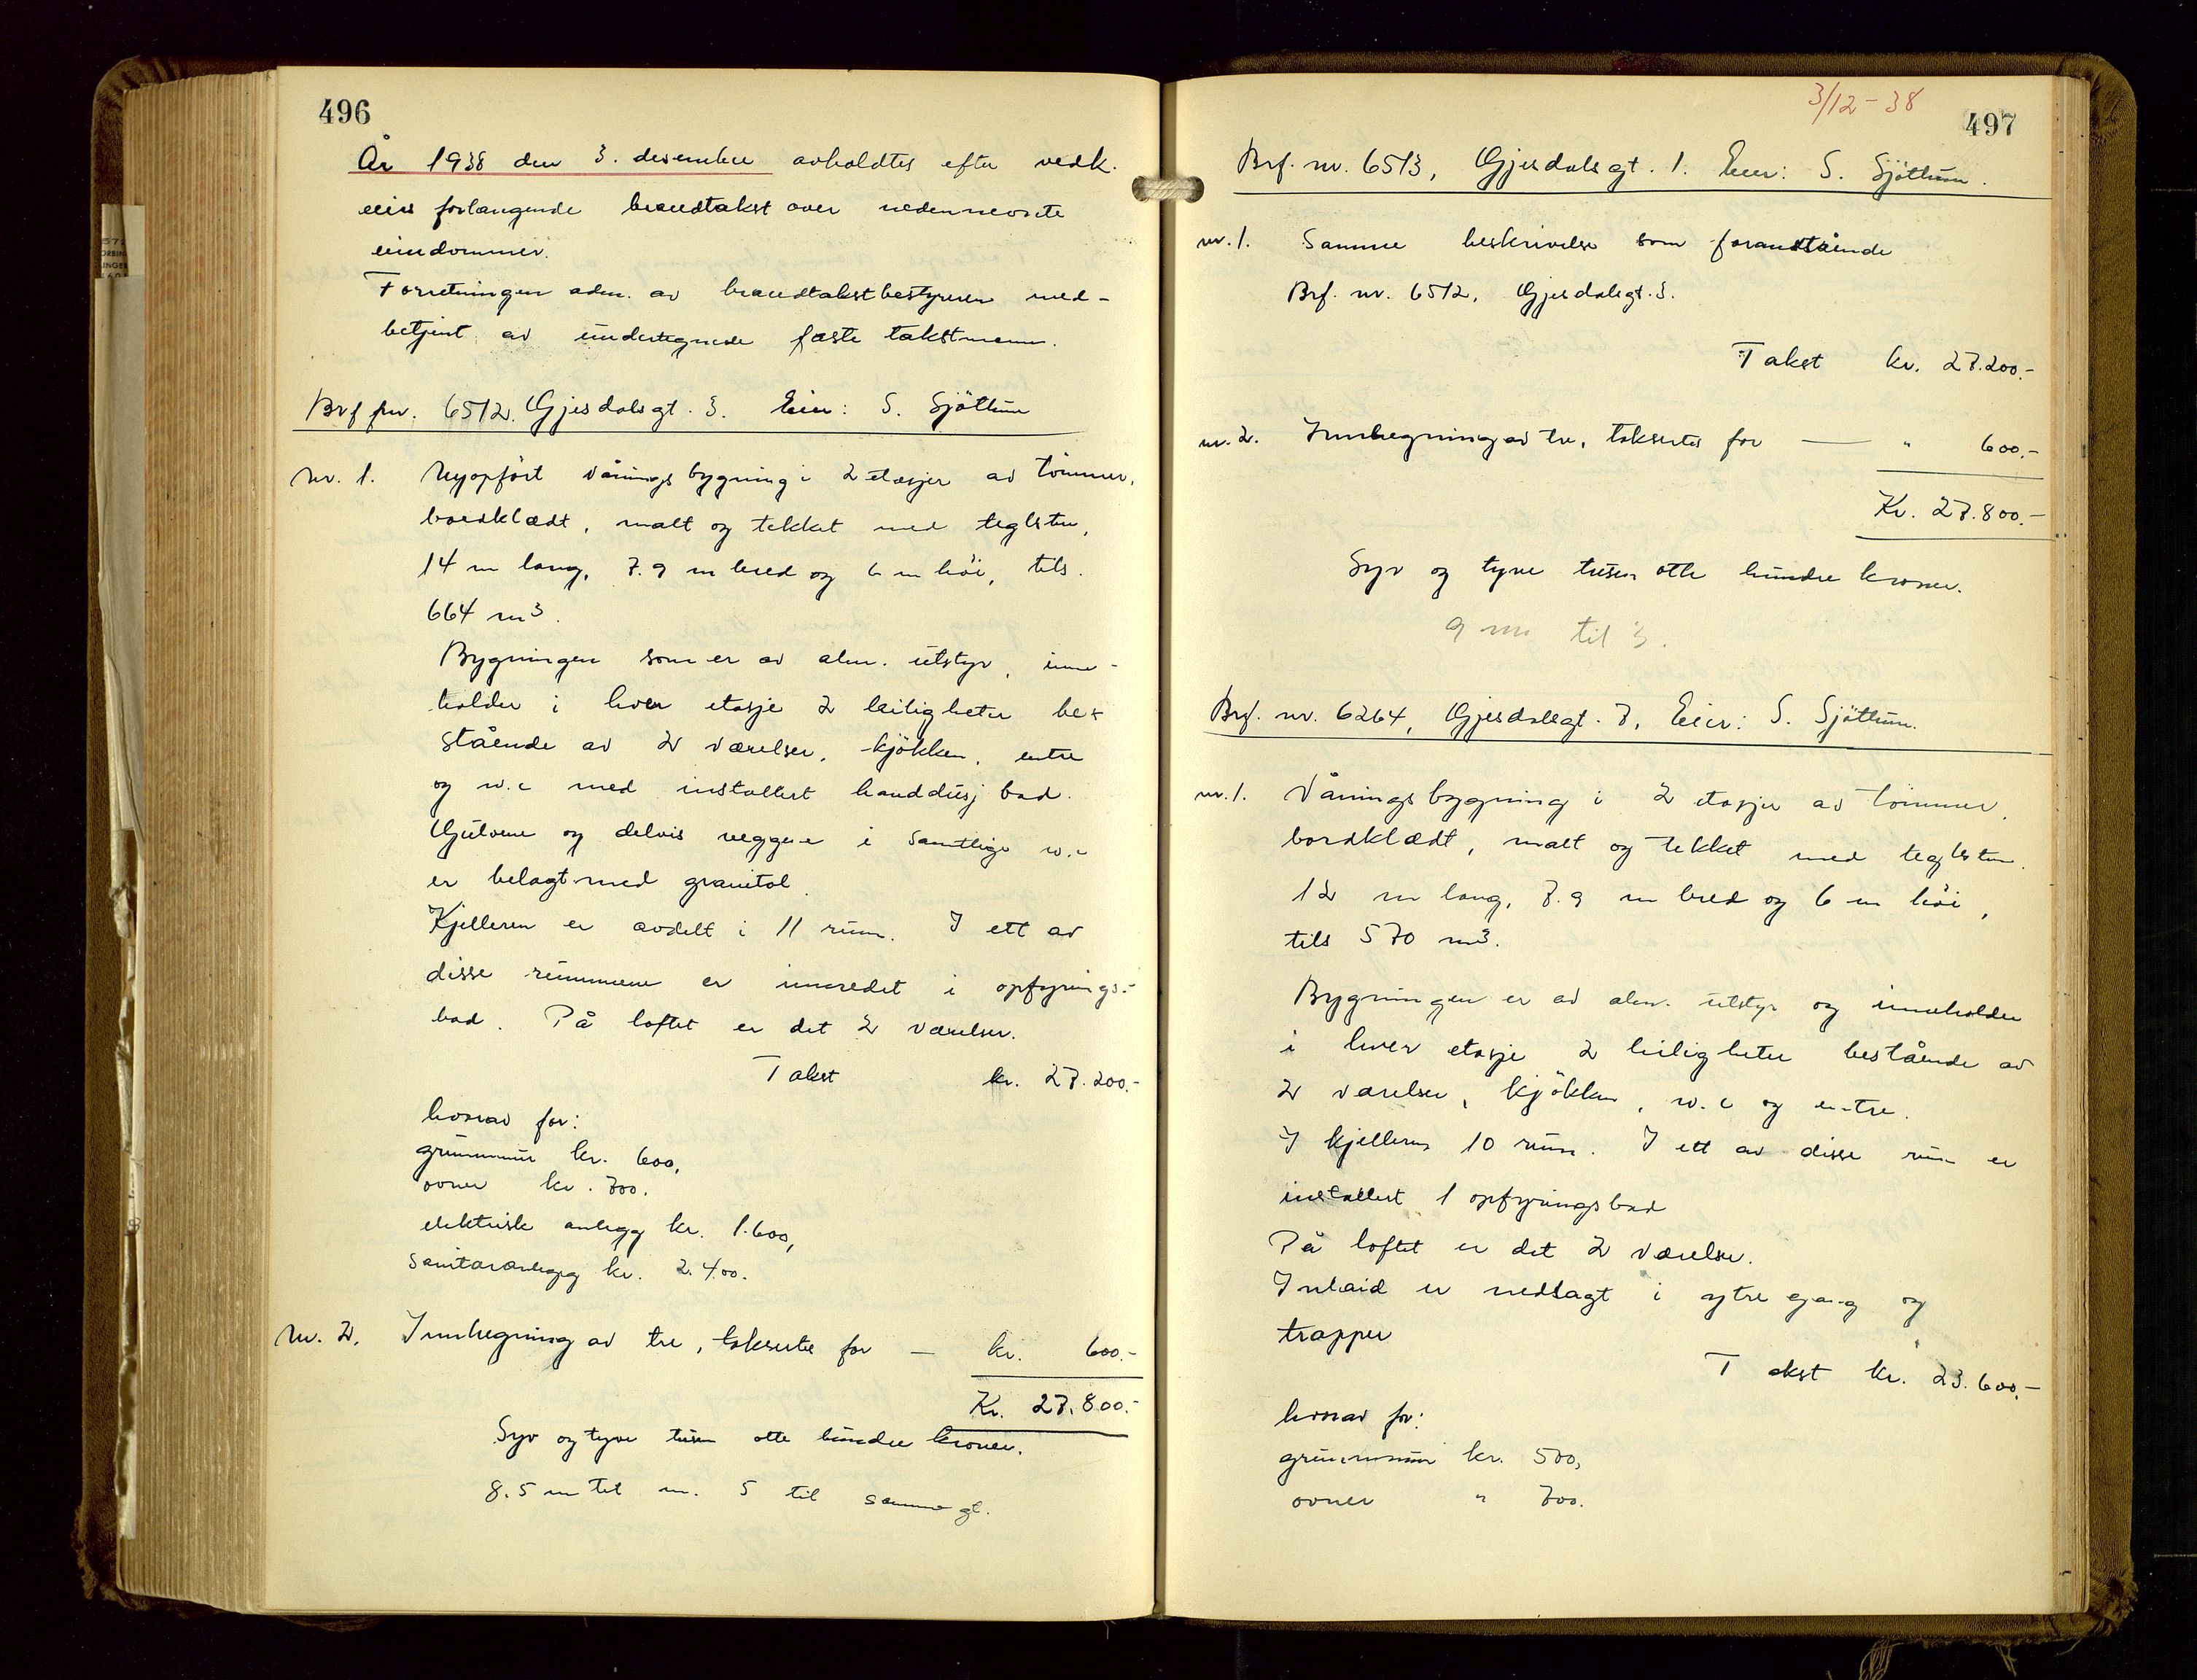 496
År 1938 den 3. desember avholdtes efter vedk.
eiers forlangende brandtakst over nedennevnte
eiendommer.
Forretningen adm. av brandtakstbestyreren med-
betjent av undertegnede faste takstmenn.
Brf nr. 6512. Gjesdalsgt. 3. Eier: S. Sjöttum
Nr. 1. Nyopfört våningsbygning i 2 etasjer av tömmer,
bordklædt, malt og tekket med teglsten,
14 m lang, 7.9 m bred og 6 m höi, tils.
664 m3.
Bygningen som er av alm. utstyr, inne-
holder i hver etasje 2 leiligheter be-
stående av 2 værelser, kjökken, entre
og w.c med installert hånddusj bad.
Gulvene og delvis veggene i samtlige w.c
er belagt med granitol.
Kjelleren er avdelt i 11 rum. I ett av
disse rummene er innredet i opfyrings-
bad. På loftet er det 2 værelser.
Takst kr. 27.200.-
hvorav for:
grunnmur kr. 600,
ovner kr. 700.
elektrisk anlegg kr. 1.600,
sanitæranlegg kr. 2.400.
Nr. 2. Innhegning av tre, takseres for — kr. 600.-
Kr. 27.800.-
Syv og tyve tusen otte hundre kroner.
8.5 m til nr. 5 til samme gt.
3/12-38
497
Brf. nr. 6513, Gjesdalsgt. 1. Eier: S. Sjöttum.
nr. 1. Samme beskrivelse som foranstående
Brf. nr. 6512, Gjesdalsgt. 3.
Takst kr. 27.200.-
nr. 2. Innhegning av tre, takseres for — " 600.-
Kr. 27.800.-
Syv og tyve tusen otte hundre kroner.
9 m til 3.
Brf. nr. 6264, Gjesdalsgt. 7, Eier: S. Sjöttum.
nr. 1. Våningsbygning i 2 etasjer av tömmer,
bordklædt, malt og tekket med teglsten.
12 m lang, 7.9 m bred og 6 m höi,
tils 570 m3.
Bygningen er av alm. utstyr og inneholder
i hver etasje 2 leiligheter bestående av
2 værelser, kjökken, w.c og entre.
I kjelleren 10 rum. I ett av disse rum er
installert 1 opfyringsbad
På loftet er det 2 værelser.
Inlaid er nedlagt i ytre gang og
trapper
Takst kr. 23.600.-
hvorav for:
grunnmur kr. 500,
ovner " 700.